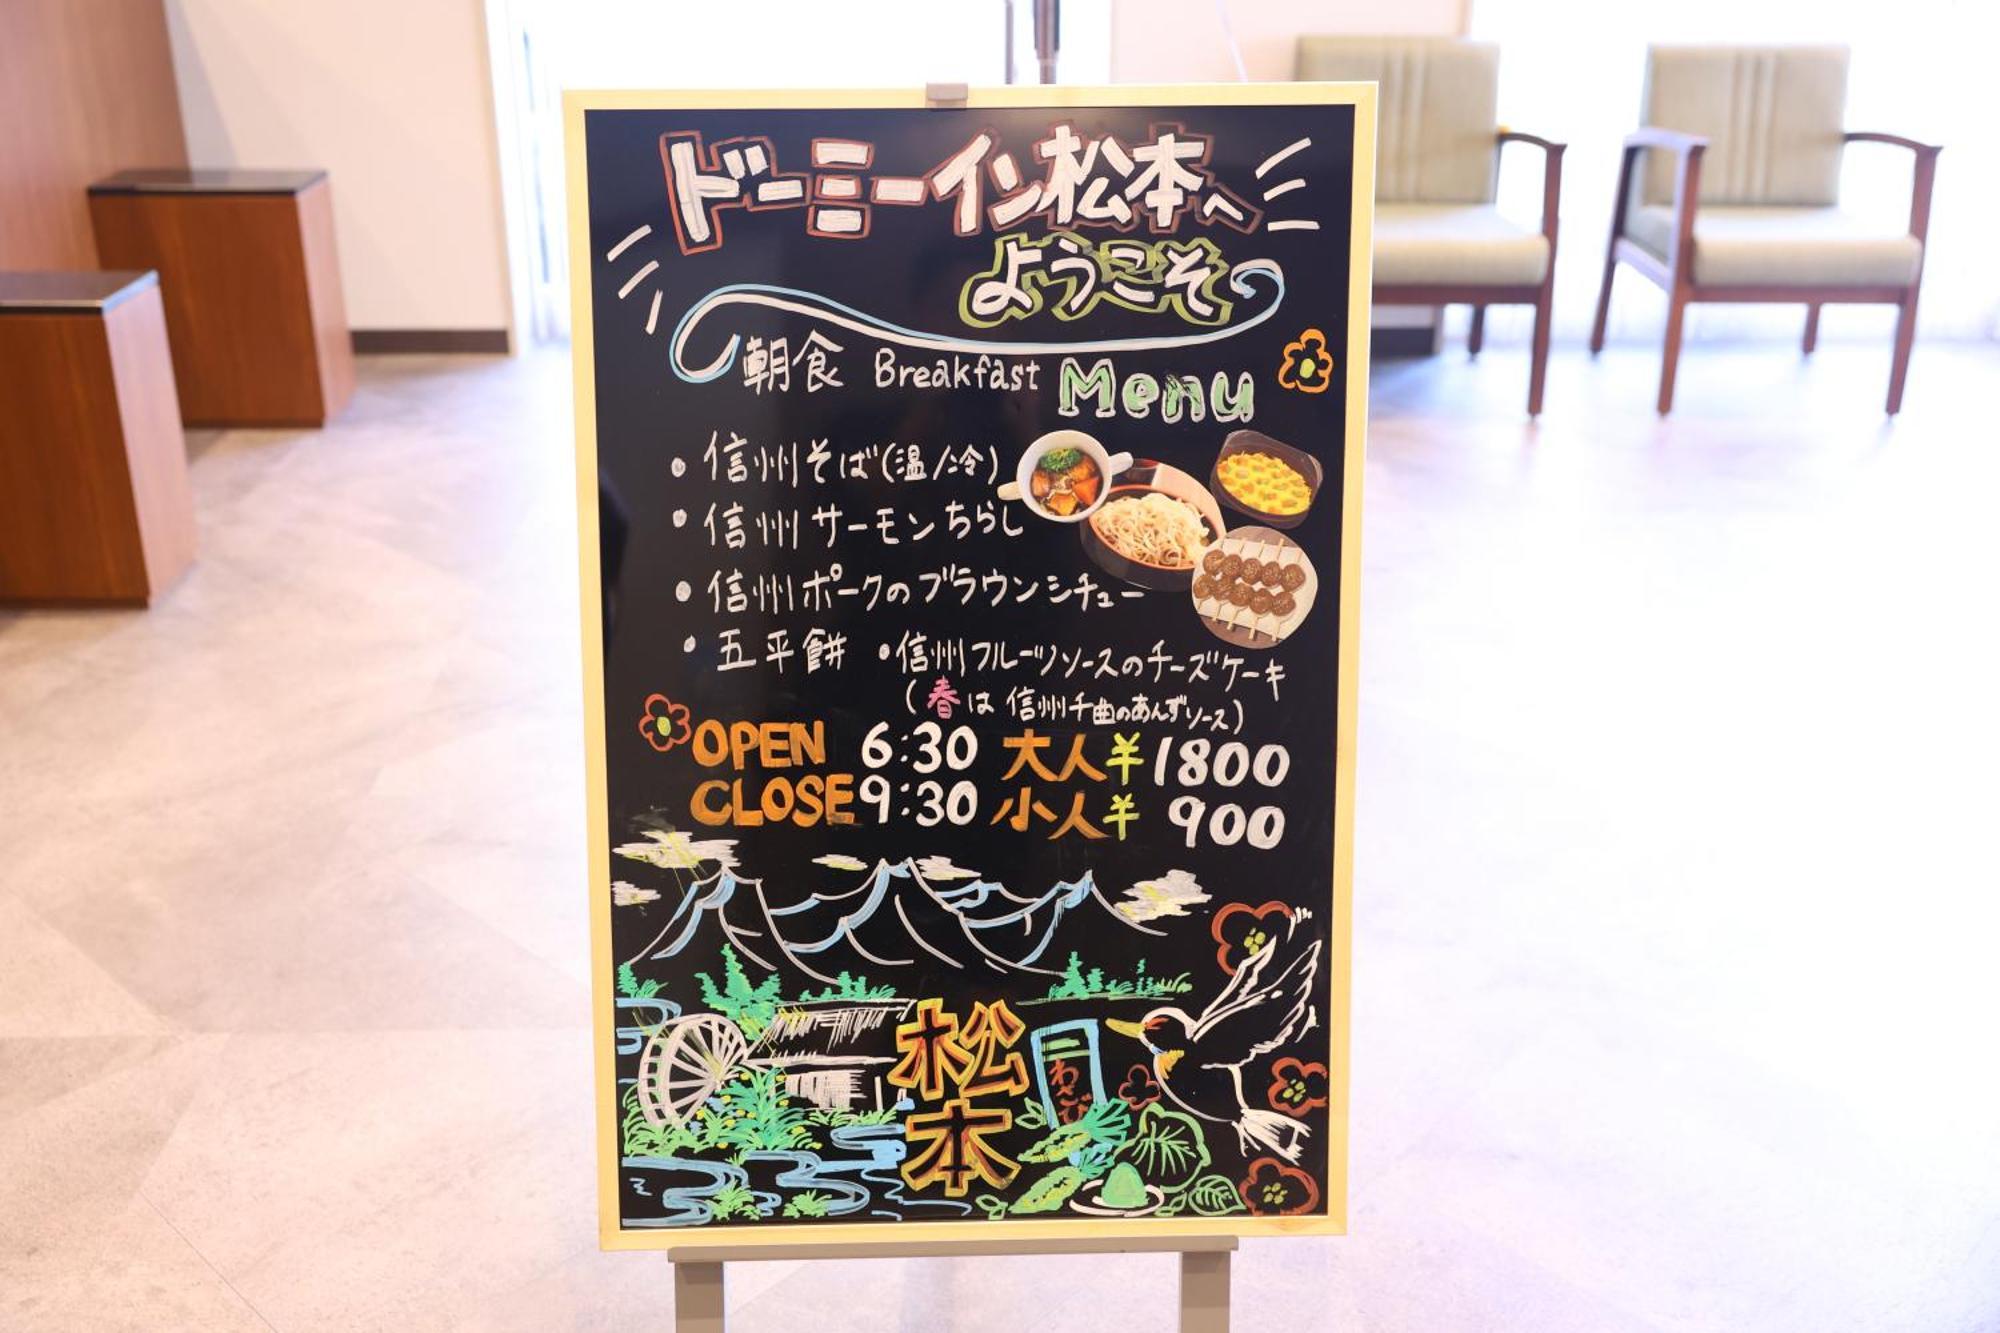 ドーミーイン松本へ
ようこそ
朝食 Breakfast Menu
・信州そば(温/冷)
・信州サーモンちらし
・信州ポークのブラウンシチュー
・五平餅 ・信州フルーツソースのチーズケーキ
(春は信州千曲のあんずソース)
OPEN 6:30 大人¥1800
CLOSE 9:30 小人¥900
松本
わさび